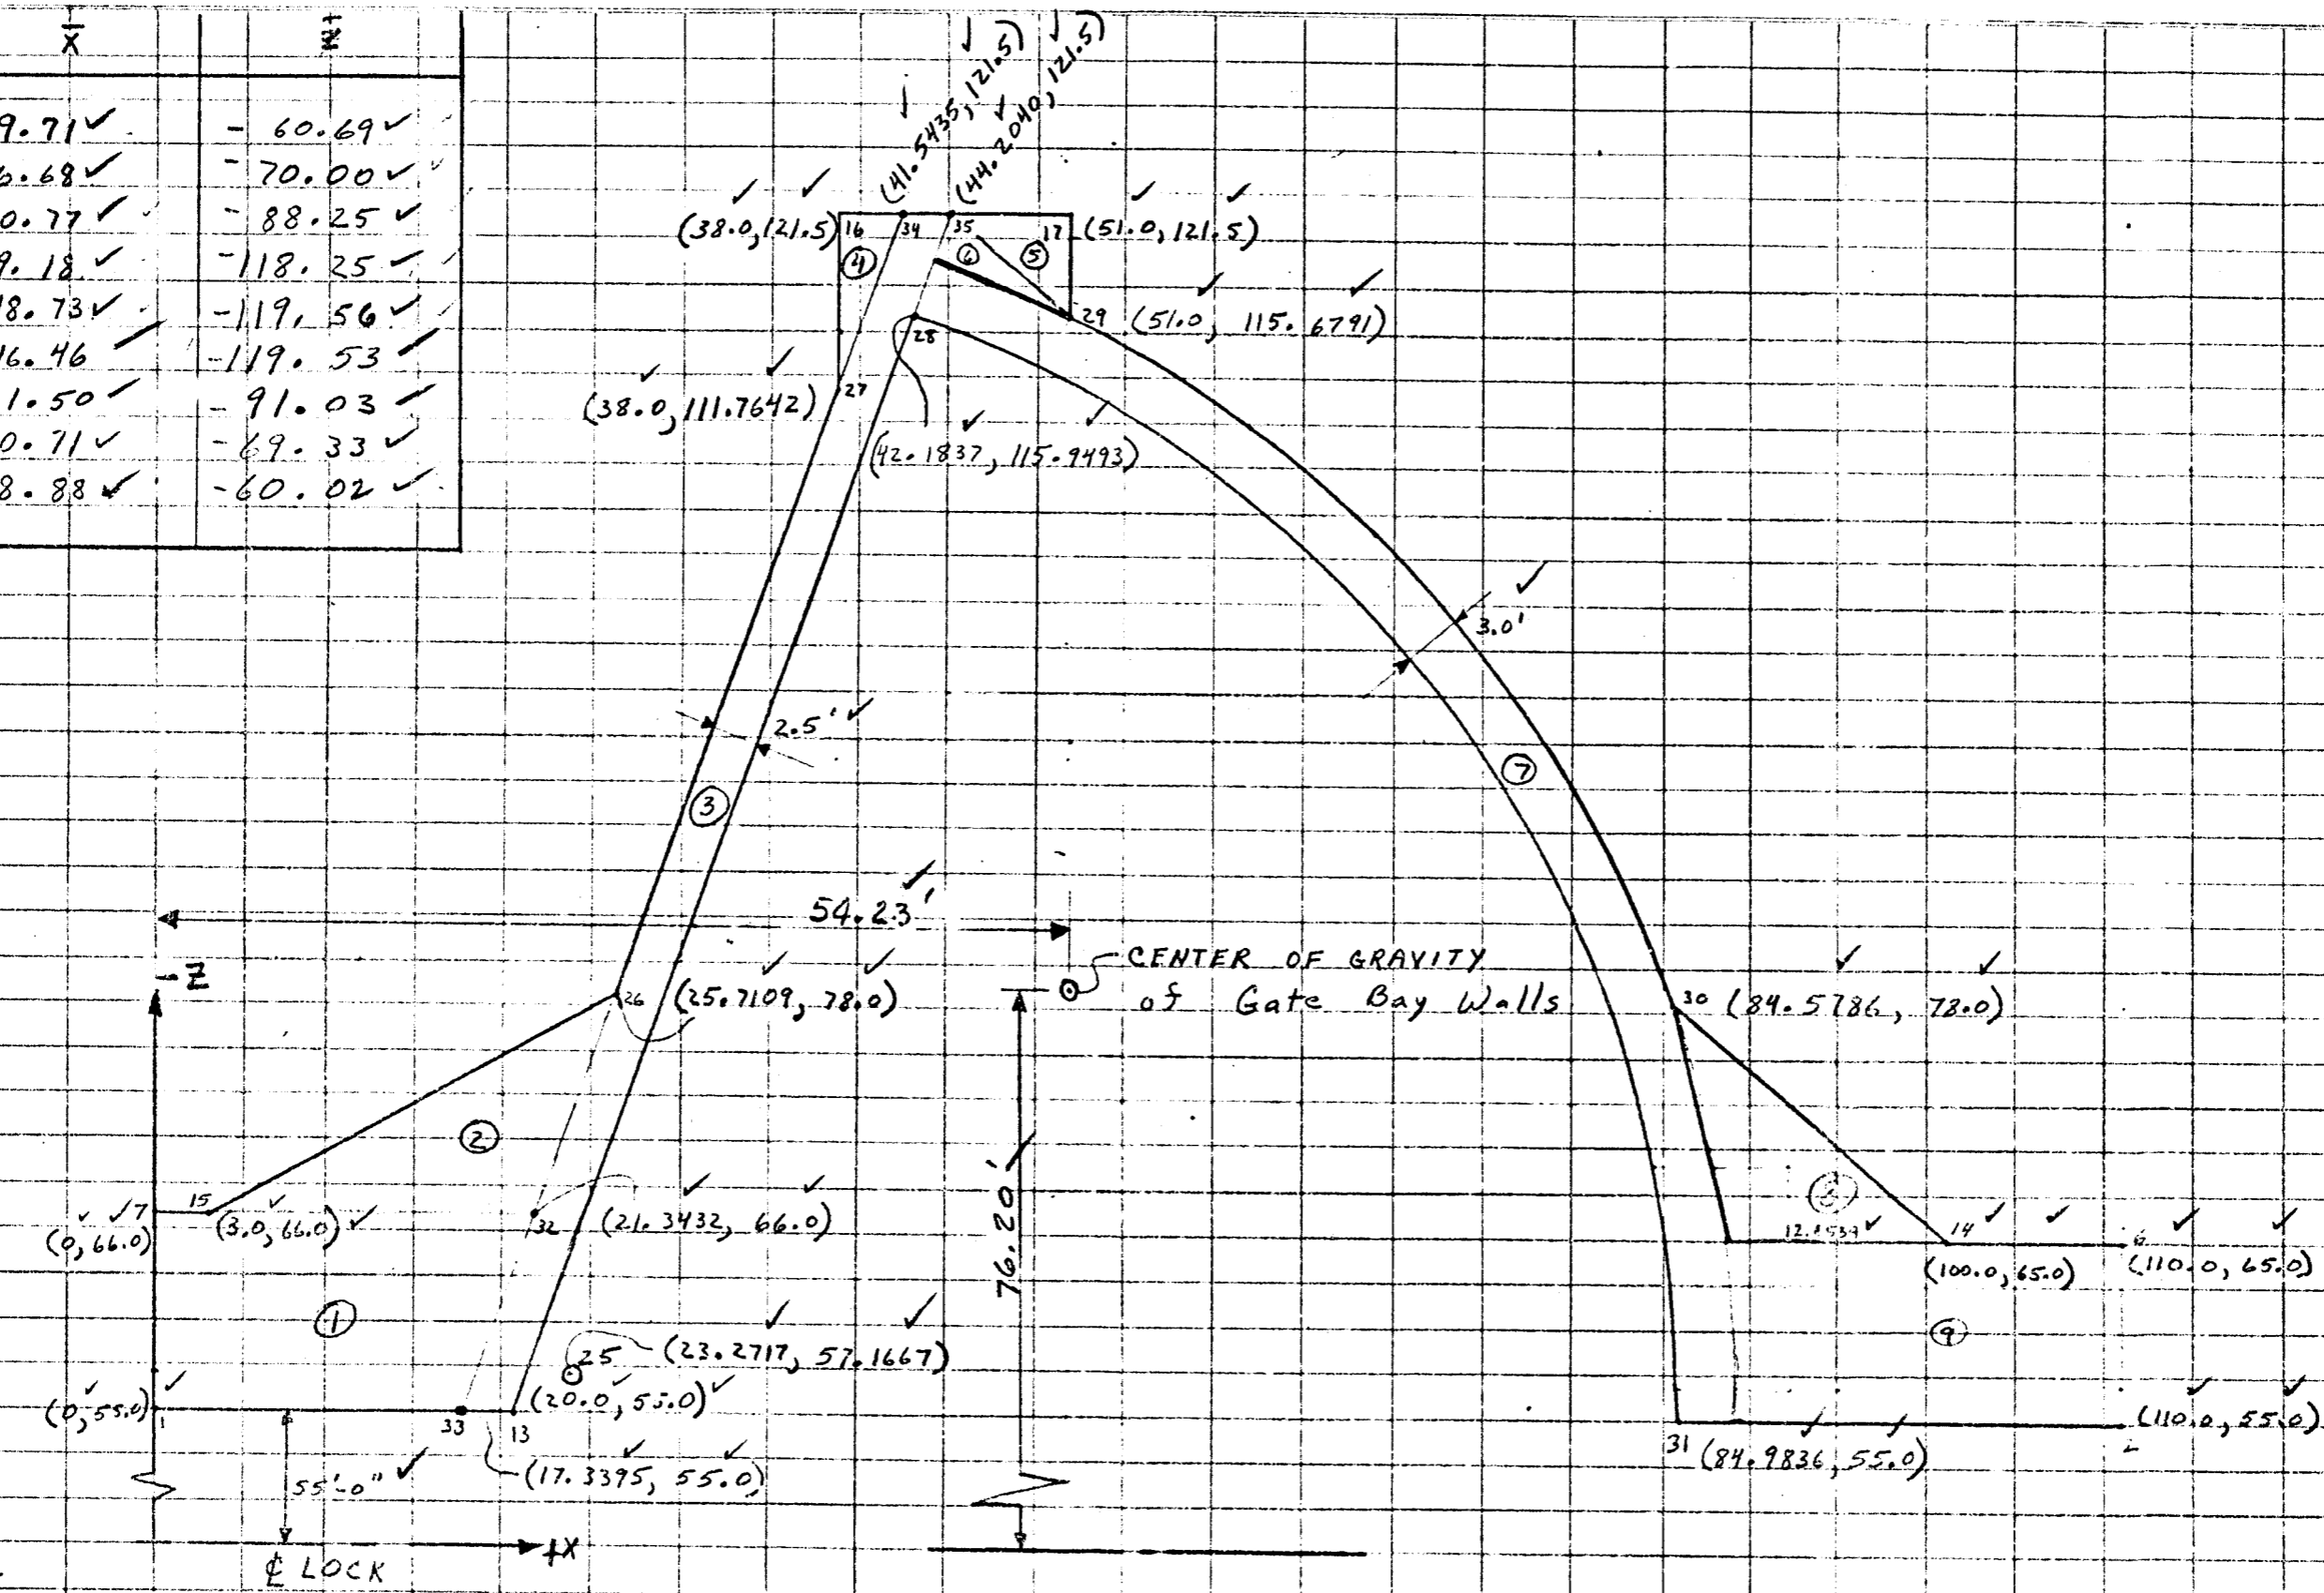 X Z
9.71 - 60.69
6.68 - 70.00
0.77 - 88.25
9.18 -118.25
8.73 -119.56
16.46 -119.53
1.50 - 91.03
0.71 - 69.33
8.88 -60.02
(41.5435, 121.5)
(44.2040, 121.5)
(38.0, 121.5) 16 34 35 17 (51.0, 121.5)
4 6 5
29 (51.0, 115.6791)
28
(38.0, 111.7642) 27
(42.1837, 115.9493)
3.0'
2.5'
7
3
54.23'
-Z
CENTER OF GRAVITY
of Gate Bay Walls
26 (25.7109, 78.0)
30 (84.5786, 78.0)
2
76.20'
7 15
(0, 66.0) (3.0, 66.0)
32 (21.3432, 66.0)
8
14 6
(100.0, 65.0) (110.0, 65.0)
1
9
25 (23.2717, 57.1667)
(0, 55.0) 1 (20.0, 55.0)
33 13
(17.3395, 55.0)
(110.0, 55.0)
31 (84.9836, 55.0)
55'-0"
+X
℄ LOCK